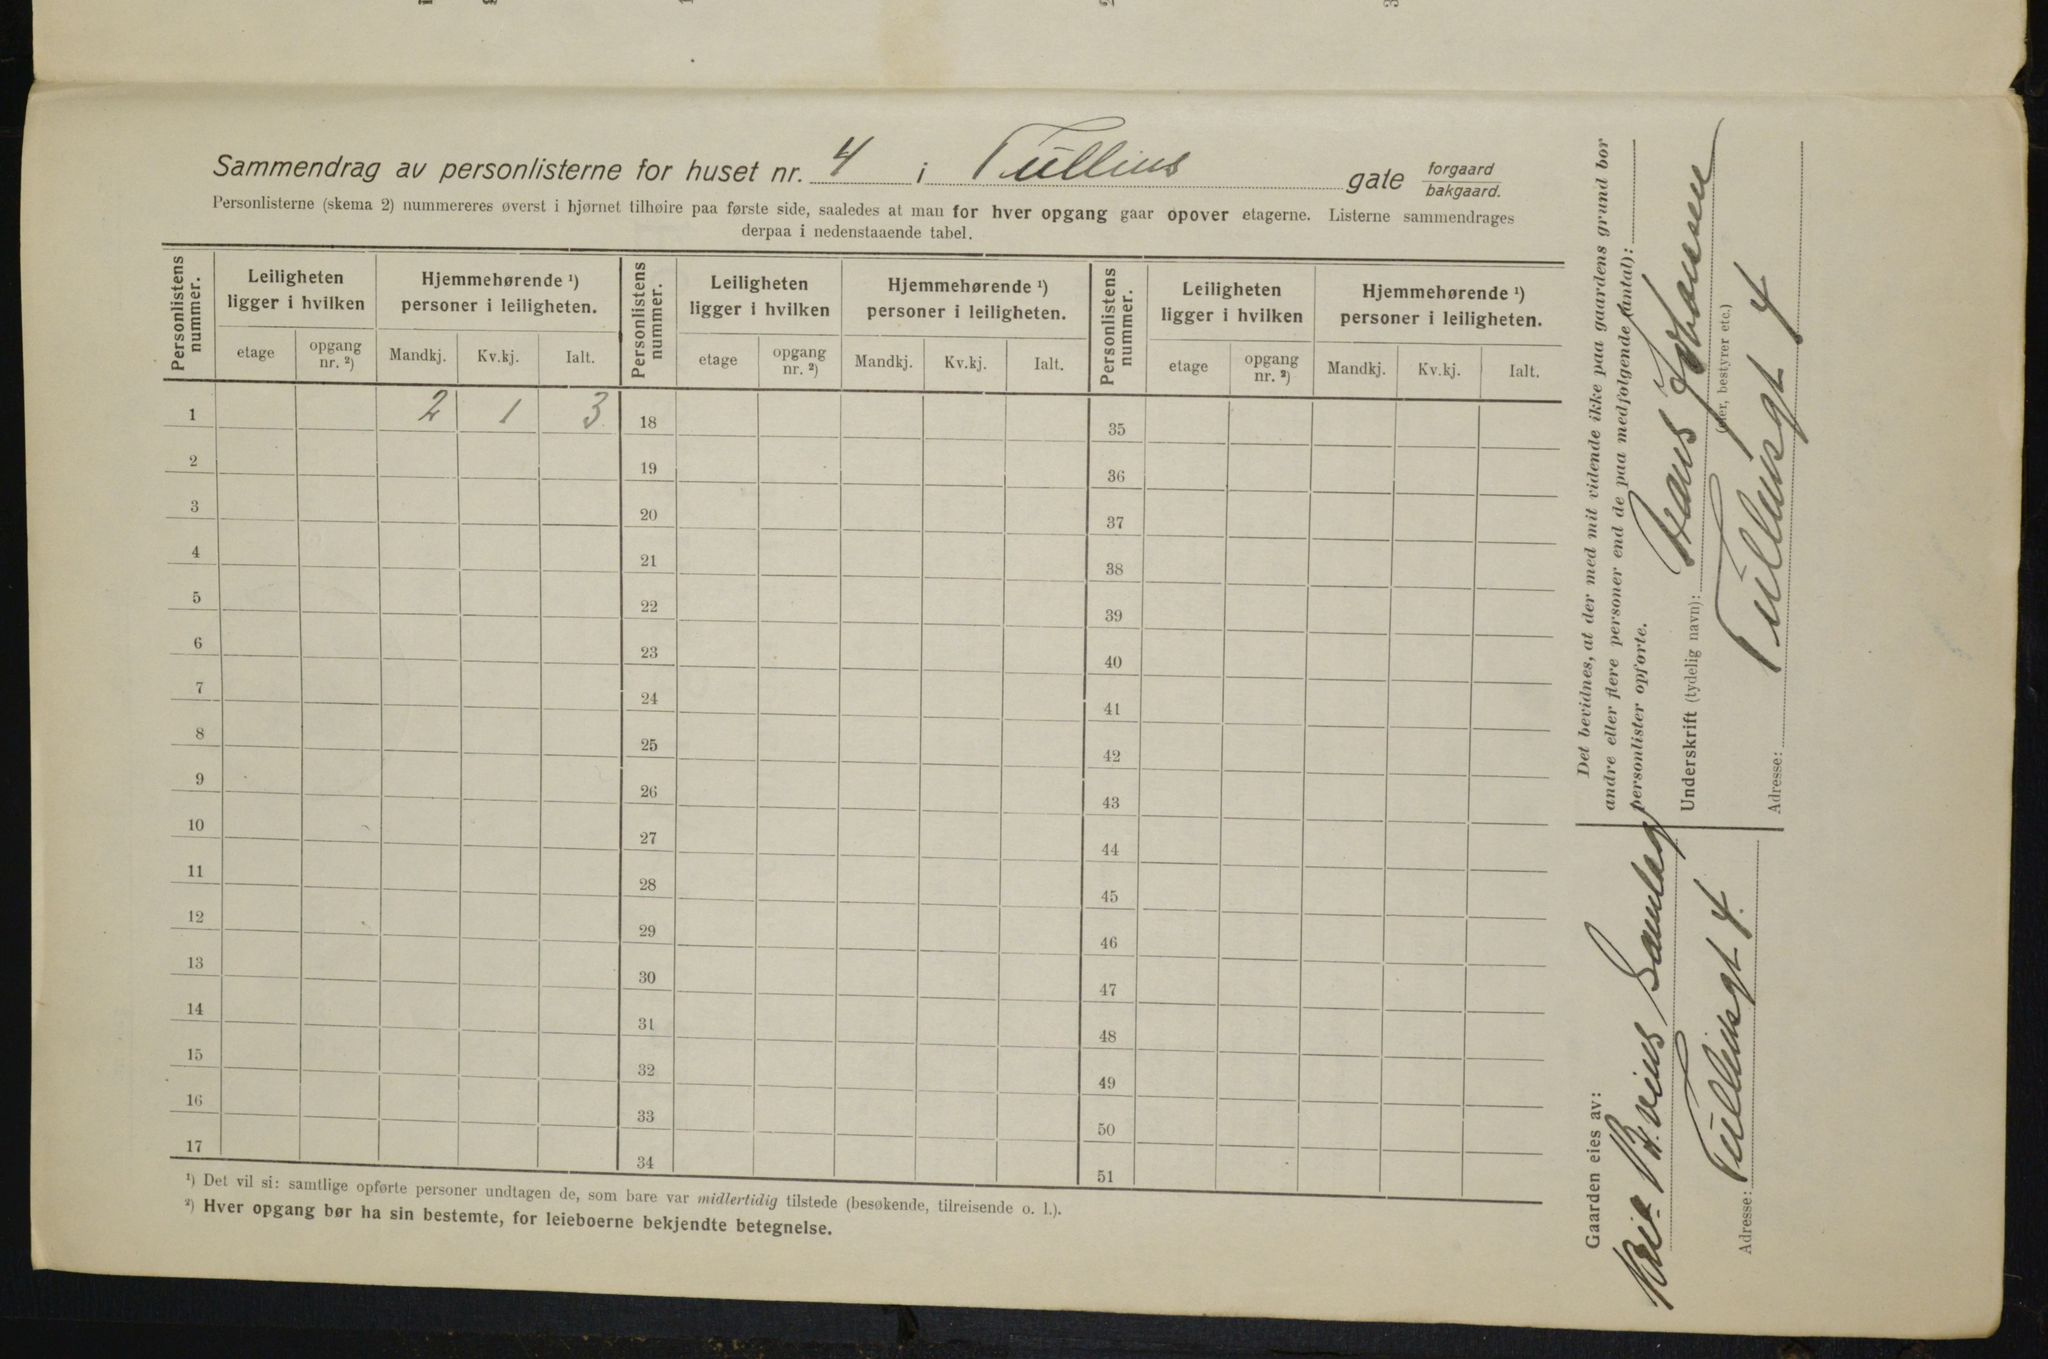 Sammendrag av personlisterne for huset nr. 4 i Tullins gate forgaard
bakgaard.
Personlisterne (skema 2) nummereres øverst i hjørnet tilhøire paa første side, saaledes at man for hver opgang gaar opover etagerne. Listerne sammendrages
derpaa i nedenstaaende tabel.
Personlistens nummer. Leiligheten ligger i hvilken Hjemmehørende ¹) personer i leiligheten. Personlistens nummer. Leiligheten ligger i hvilken Hjemmehørende ¹) personer i leiligheten. Personlistens nummer. Leiligheten ligger i hvilken Hjemmehørende ¹) personer i leiligheten.
etage opgang nr. ²) Mandkj. Kv.kj. Ialt. etage opgang nr. ²) Mandkj. Kv.kj. Ialt. etage opgang nr. ²) Mandkj. Kv.kj. Ialt.
1 2 1 3 18 35
2 19 36
3 20 37
4 21 38
5 22 39
6 23 40
7 24 41
8 25 42
9 26 43
10 27 44
11 28 45
12 29 46
13 30 47
14 31 48
15 32 49
16 33 50
17 34 51
¹) Det vil si: samtlige opførte personer undtagen de, som bare var midlertidig tilstede (besøkende, tilreisende o. l.).
²) Hver opgang bør ha sin bestemte, for leieboerne bekjendte betegnelse.
Det bevidnes, at der med mit vidende ikke paa gaardens grund bor
andre eller flere personer end de paa medfølgende (antal):
personlister opførte.
Underskrift (tydelig navn): Hans Johansen
(eier, bestyrer etc.)
Adresse: Tullinsgt 4
Gaarden eies av:
Adresse: Tullinsgt 4.